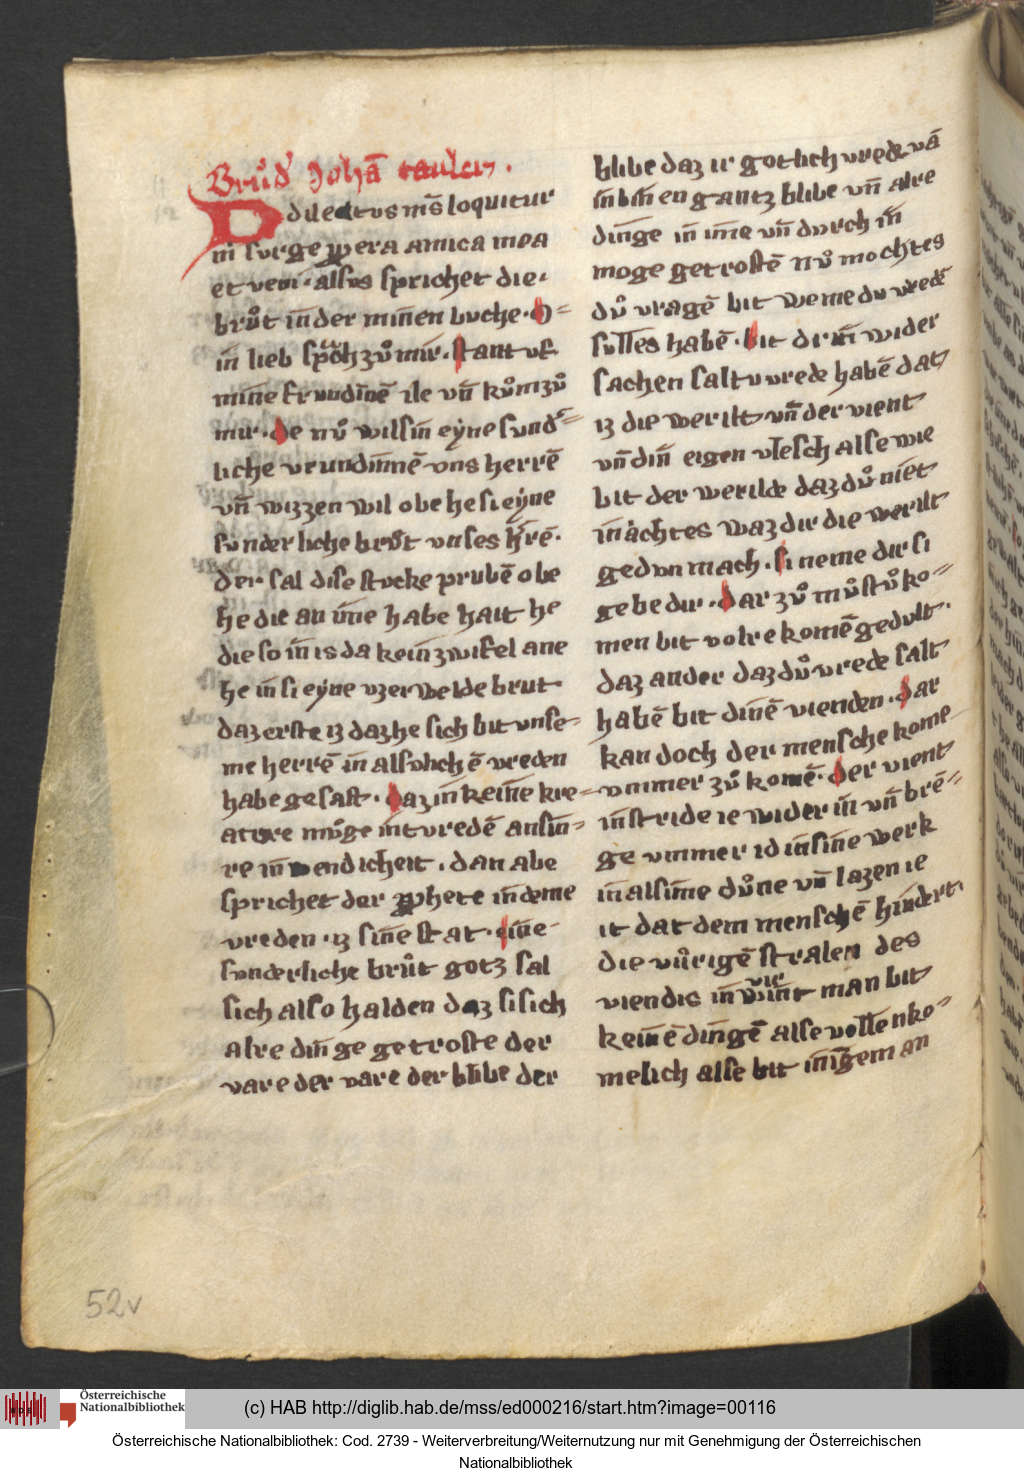 Brůd' Johā tauleri.
Dilectus m̄s loquitur
m̄ surge ꝓpera amica mea
et veni. alsus sprichet die.
brůt in der minnen buche. O=
in lieb sprichͭ zů mir. stant uf
mine frundīnē ile vn̄ kům zů
mir. de nů wilsin eyne sund'=
liche vrundinnē vns herrē
vn̄ wizzen wil obe he si eyne
sunderliche brůt vnses h'rē.
der sal dise stucke prubē obe
he die an ime habe hait he
die so in is da kein zwifel ane
he in si eyne vzerwelde brut
daz erste iz daz he sich bit vnse=
me herrē in alsulichē vreden
habe gesast. daz in keine kre=
ature můge intvredē an sin=
re inwendicheit. dan abe
sprichet der ꝓphete in deme
vreden. iz sine stat. eine
sunderliche brůt gotz sal
sich also halden daz si sich
alre dinge getroste der
vare der vare der blibe der
blibe daz ir gotlich vrede vā
in binnen gantz blibe vn̄ alre
dinge in ime vn̄ durch in
moge getrostē Nů mochtes
dů vragē bit weme du vredē
sulles habē. bit dirre wider
sachen saltu vrede habē dat
iz die werilt vn̄ der vient
vn̄ din eigen vleisch alse wie
bit der werilde daz dů niet
in achtes waz dir die werilt
gedun mach. si neme dir si
gebe dir. dar zů můstů ko=
men bit volrekomē gedult.
daz ander daz dů vrede salt
habē bit dinē vienden. dar
kan doch der mensche kome
vmmer zů komē. der vient
in stride ie wider in vn̄ brē=
ge vmmer id in sine werk
in alsime důne vn̄ lazen ie
it dat dem menschē hindert.
die vůrigē stralen des
viendis in vir wint man bit
keinē dingē alse vollenko=
melich alse bit innigem an
52v
Österreichische
Nationalbibliothek
(c) HAB http://diglib.hab.de/mss/ed000216/start.htm?image=00116
Österreichische Nationalbibliothek: Cod. 2739 - Weiterverbreitung/Weiternutzung nur mit Genehmigung der Österreichischen
Nationalbibliothek